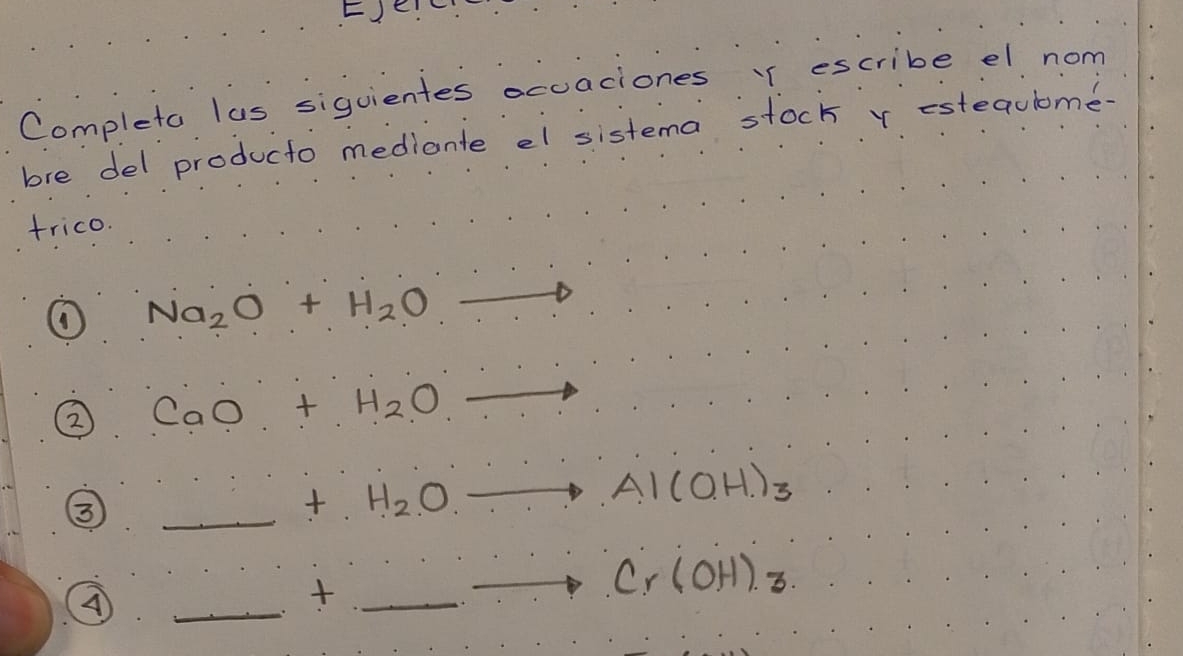 Completa las siguientes ecuaciones y escribe el nom
bre del producto mediante el sistema stock y estequiomé-
trico.
① Na₂O + H₂O →
② CaO + H₂O →
③ ____ + H₂O → Al(OH)₃
④ ____ + ____ → Cr(OH)₃